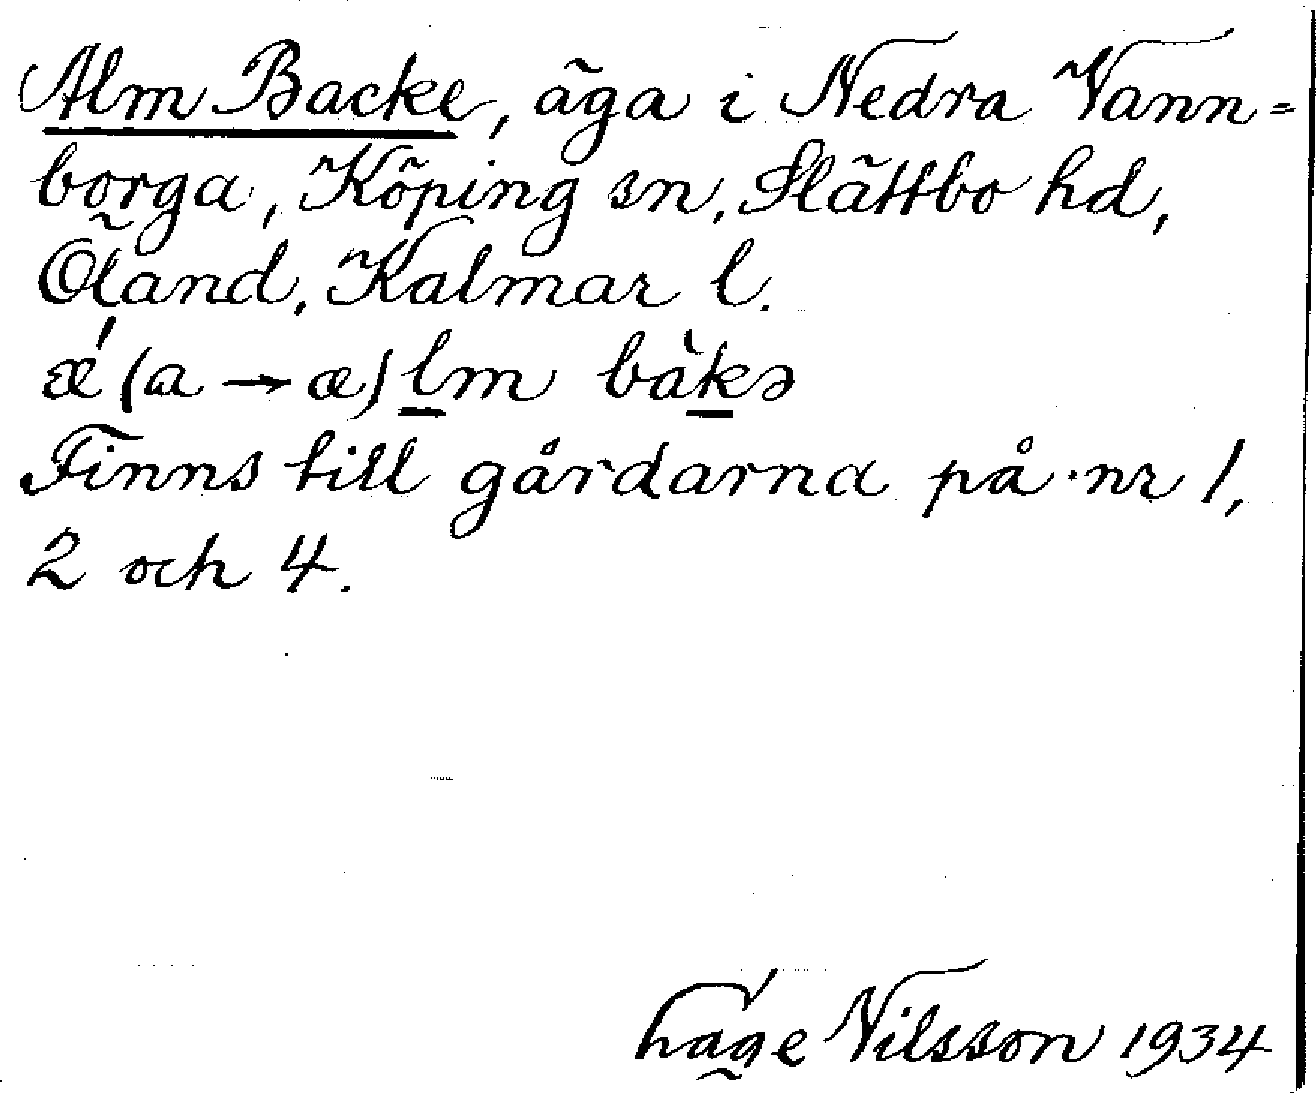 Alm Backe, äga i Nedra Vann=
borga, Köping sn, Slättbo hd,
Öland, Kalmar l.
æ̍ (a → æ) lm bàkə
Finns till gårdarna på nr 1,
2 och 4.
Nilsson 1934